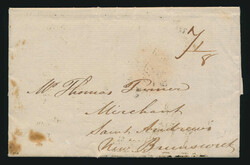 1/8
Mr Thomas Turner
Merchant
Saint Andrews
New Brunswick